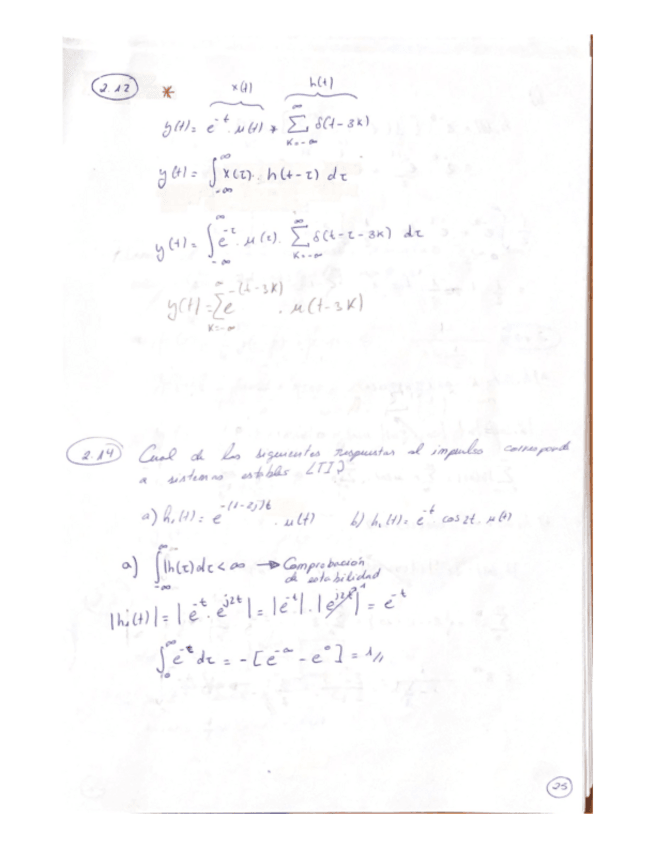 2.12 *
x(t) h(t)
y(t) = e^{-t} · μ(t) * ∑_{k=-∞}^{∞} δ(t-3k)
y(t) = ∫_{-∞}^{∞} x(τ) · h(t-τ) dτ
y(t) = ∫_{-∞}^{∞} e^{-τ} · μ(τ) · ∑_{k=-∞}^{∞} δ(t-τ-3k) dτ
y(t) = ∑_{k=-∞}^{∞} e^{-(t-3k)} · μ(t-3k)
2.14 Cual de las siguientes respuestas al impulso corresponde
a sistemas estables LTI?
a) h₁(t) = e^{-(1-2j)t} · μ(t) b) h₂(t) = e^{-t} cos2t · μ(t)
a) ∫_{-∞}^{∞} |h(τ)dτ < ∞ → Comprobación
de estabilidad
|h₁(t)| = |e^{-t} · e^{j2t}| = |e^{-t}| · |e^{j2t}|^1 = e^{-t}
∫_0^{∞} e^{-τ} dτ = -[e^{-∞} - e^0] = 1//
25